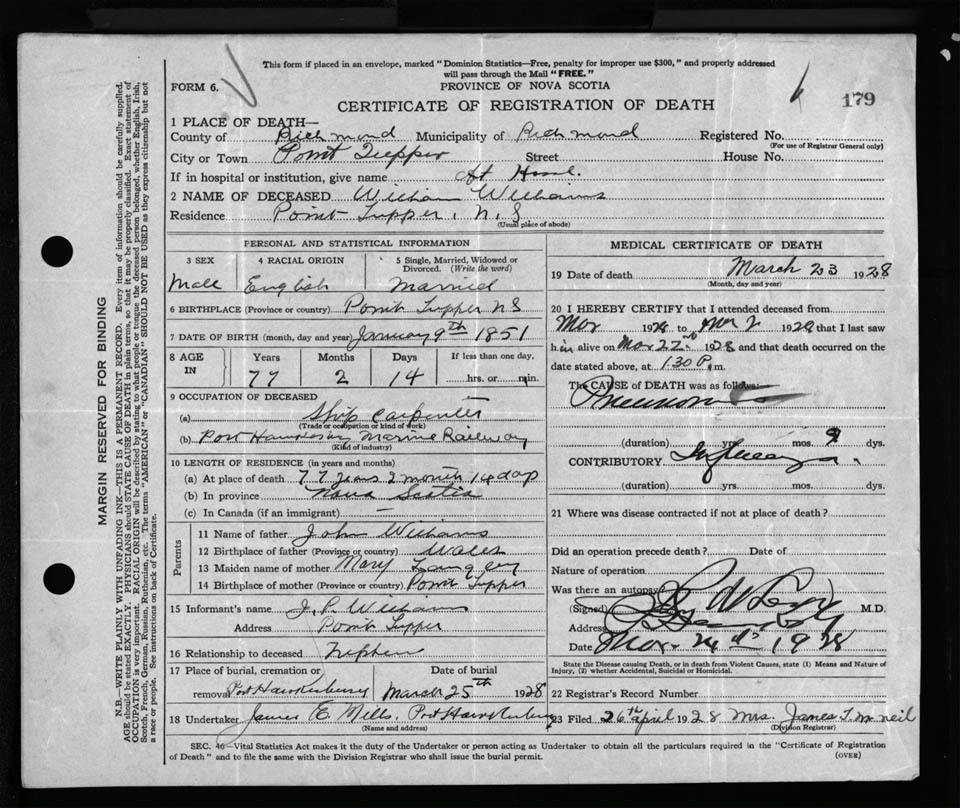 This form if placed in an envelope, marked "Dominion Statistics—Free, penalty for improper use $300," and properly addressed
will pass through the Mail "FREE."
FORM 6.
PROVINCE OF NOVA SCOTIA
CERTIFICATE OF REGISTRATION OF DEATH
179
1 PLACE OF DEATH—
County of Richmond Municipality of Richmond Registered No.
(For use of Registrar General only)
City or Town Point Tupper Street House No.
If in hospital or institution, give name At Home.
2 NAME OF DECEASED William Williams
Residence Point Tupper, N.S
(Usual place of abode)
PERSONAL AND STATISTICAL INFORMATION
3 SEX 4 RACIAL ORIGIN 5 Single, Married, Widowed or
Divorced. (Write the word)
Male English Married
6 BIRTHPLACE (Province or country) Point Tupper N S
7 DATE OF BIRTH (month, day and year) January 9th 1851
8 AGE IN Years Months Days If less than one day,
77 2 14 hrs. or min.
9 OCCUPATION OF DECEASED
(a) Ship Carpenter
(Trade or occupation or kind of work)
(b) Port Hawkesbury Marine Railway
(Kind of industry)
10 LENGTH OF RESIDENCE (in years and months)
(a) At place of death 77 years 2 month 14 days
(b) In province Nova Scotia
(c) In Canada (if an immigrant) —
Parents
11 Name of father John Williams
12 Birthplace of father (Province or country) Wales
13 Maiden name of mother Mary
14 Birthplace of mother (Province or country) Point Tupper
15 Informant's name J. P. Williams
Address Point Tupper
16 Relationship to deceased Nephew
17 Place of burial, cremation or Date of burial
removal Port Hawkesbury March 25th 1928
18 Undertaker James E. Mills, Port Hawkesbury
(Name and address)
MEDICAL CERTIFICATE OF DEATH
19 Date of death March 23 1928
(Month, day and year)
20 I HEREBY CERTIFY that I attended deceased from
Mar 1928 to Mar 1928 that I last saw
him alive on Mar 22nd 1928 and that death occurred on the
date stated above, at 1.30 P.m.
The CAUSE of DEATH was as follows:
Pneumonia
(duration) yrs. mos. 9 dys.
CONTRIBUTORY Influenza.
(duration) yrs. mos. dys.
21 Where was disease contracted if not at place of death?
Did an operation precede death? Date of
Nature of operation
Was there an autopsy
(Signed) M.D.
Address
Date Mar. 24th 1928
State the Disease causing Death, or in death from Violent Causes, state (1) Means and Nature of
Injury, (2) whether Accidental, Suicidal or Homicidal.
22 Registrar's Record Number
23 Filed 26th April 1928 Mrs James T. McNeil
(Division Registrar)
SEC. 46—Vital Statistics Act makes it the duty of the Undertaker or person acting as Undertaker to obtain all the particulars required in the "Certificate of Registration
of Death" and to file the same with the Division Registrar who shall issue the burial permit.
(OVER)
MARGIN RESERVED FOR BINDING
N.B.—WRITE PLAINLY WITH UNFADING INK—THIS IS A PERMANENT RECORD. Every item of information should be carefully supplied.
AGE should be stated EXACTLY. PHYSICIANS should STATE CAUSE OF DEATH in plain terms, so that it may be properly classified. Exact statement of
OCCUPATION is very important. RACIAL ORIGIN will be described by stating to what people or tongue the deceased person belonged, whether English, Irish,
Scotch, French, German, Russian, Ruthenian, etc. The terms "AMERICAN" or "CANADIAN" SHOULD NOT BE USED as they express citizenship but not
a race or people. See instructions on back of Certificate.